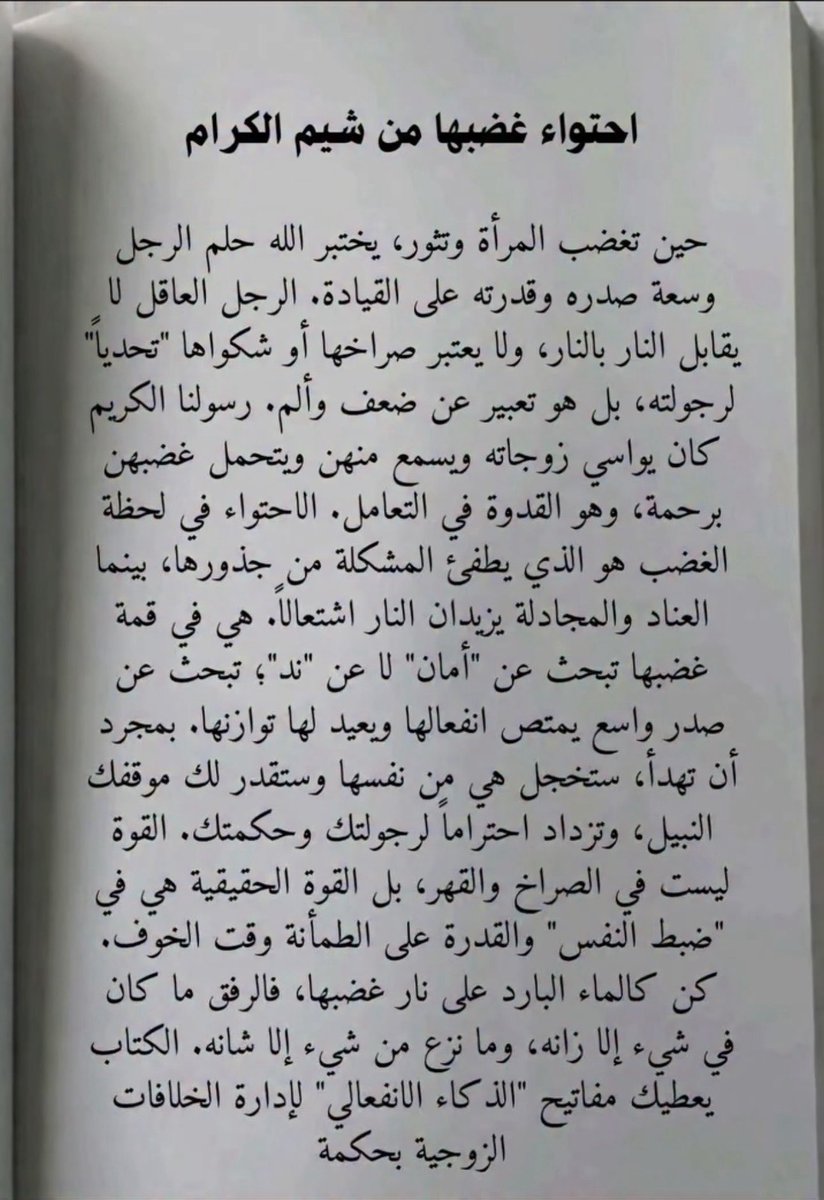 احتواء غضبها من شيم الكرام
حين تغضب المرأة وتثور، يختبر الله حلم الرجل
وسعة صدره وقدرته على القيادة. الرجل العاقل لا
يقابل النار بالنار، ولا يعتبر صراخها أو شكواها "تحدياً"
لرجولته، بل هو تعبير عن ضعف وألم. رسولنا الكريم
كان يواسي زوجاته ويسمع منهن ويتحمل غضبهن
برحمة، وهو القدوة في التعامل. الاحتواء في لحظة
الغضب هو الذي يطفئ المشكلة من جذورها، بينما
العناد والمجادلة يزيدان النار اشتعالاً. هي في قمة
غضبها تبحث عن "أمان" لا عن "ند"؛ تبحث عن
صدر واسع يمتص انفعالها ويعيد لها توازنها. بمجرد
أن تهدأ، ستخجل هي من نفسها وستقدر لك موقفك
النبيل، وتزداد احتراماً لرجولتك وحكمتك. القوة
ليست في الصراخ والقهر، بل القوة الحقيقية هي في
"ضبط النفس" والقدرة على الطمأنة وقت الخوف.
كن كالماء البارد على نار غضبها، فالرفق ما كان
في شيء إلا زانه، وما نزع من شيء إلا شانه. الكتاب
يعطيك مفاتيح "الذكاء الانفعالي" لإدارة الخلافات
الزوجية بحكمة